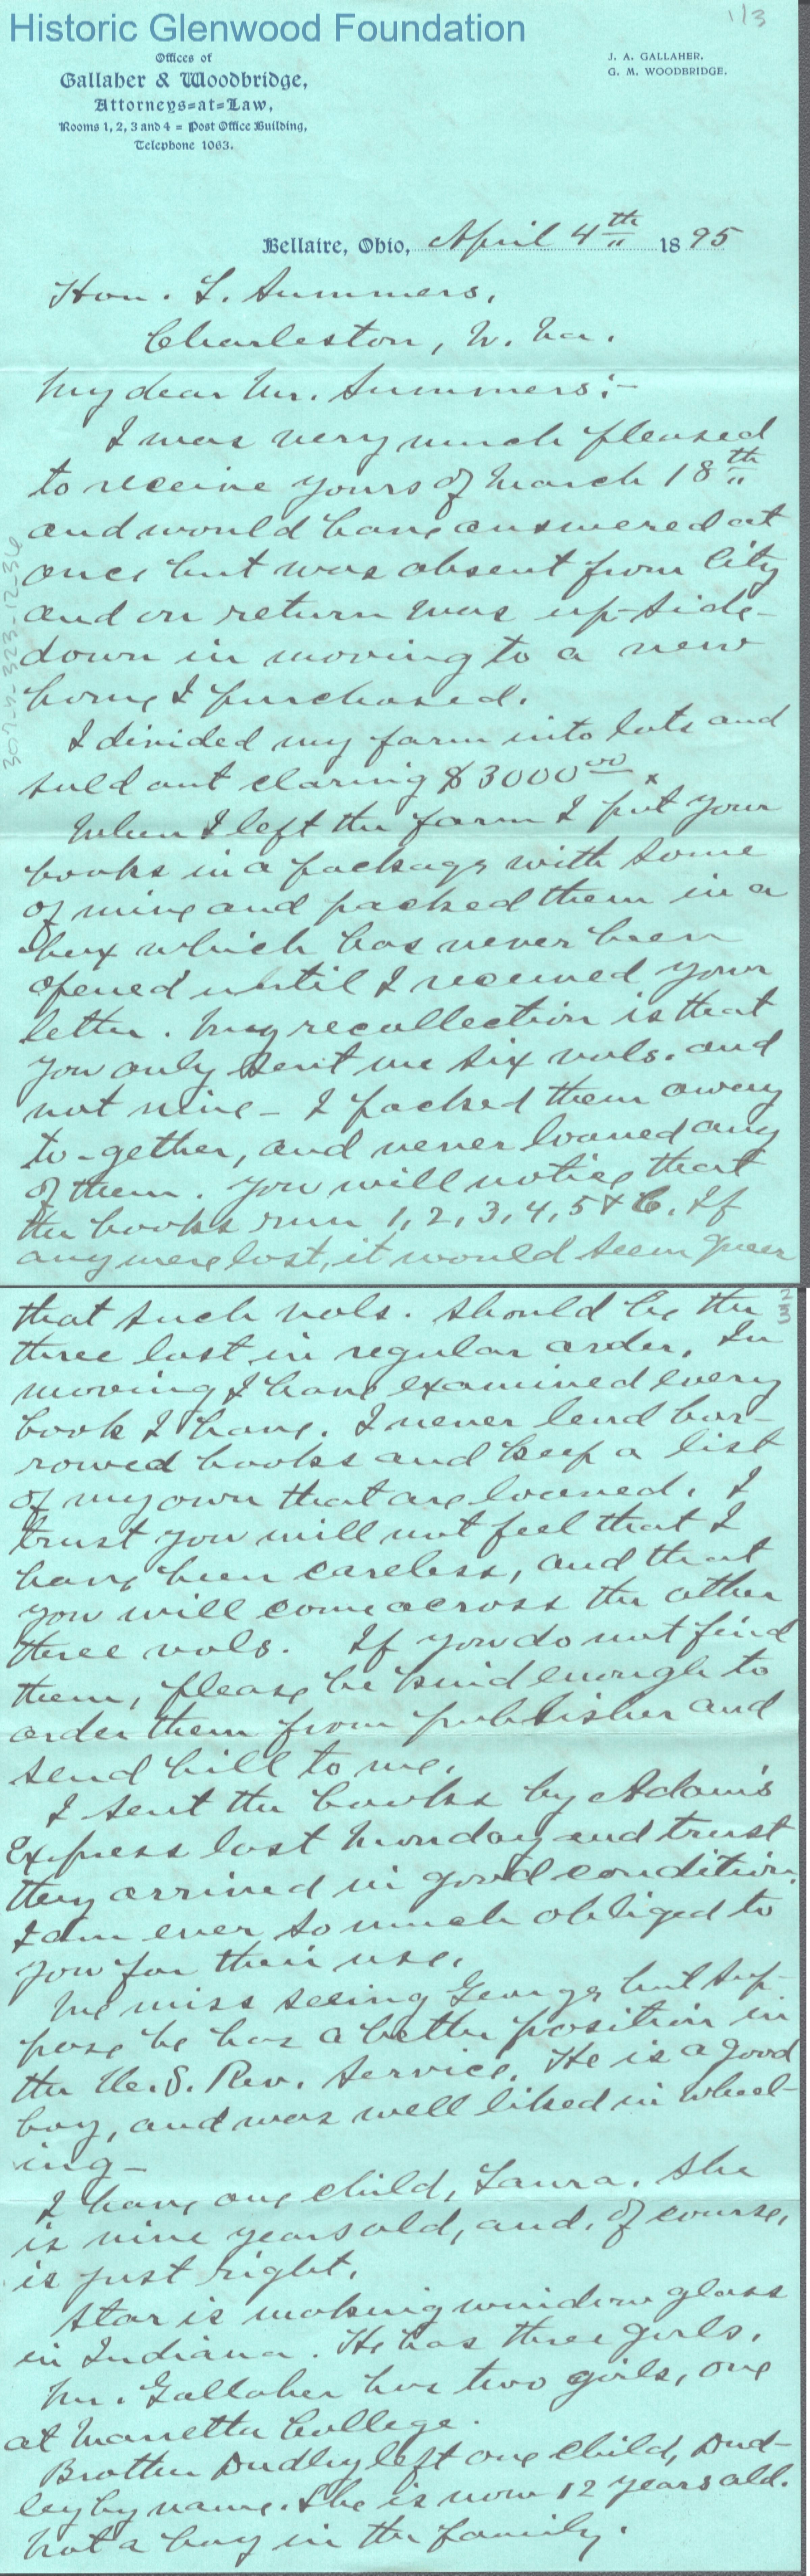 Historic Glenwood Foundation
1/3
Offices of
Gallaher & Woodbridge,
Attorneys=at=Law,
Rooms 1, 2, 3 and 4 = Post Office Building,
Telephone 1063.
J. A. GALLAHER.
G. M. WOODBRIDGE.
Bellaire, Ohio, April 4th 1895
Hon. L. Summers,
Charleston, W. Va.
My dear Mr. Summers:-
I was very much pleased
to receive yours of March 18th
and would have answered at
once but was absent from City
and on return was up-side-
down in moving to a new
home I purchased.
I divided my farm into lots and
sold out claring $3000.00
When I left the farm I put your
books in a package with some
of mine and packed them in a
box which has never been
opened until I received your
letter. My recollection is that
you only sent me six vols. and
not nine - I packed them away
to-gether, and never loaned any
of them. You will notice that
the books run 1, 2, 3, 4, 5 & 6. If
any were lost, it would seem queer
307-5-323-12-36
2/3
that such vols. should be the
three last in regular order. In
moving I have examined every
book I have. I never lend bor-
rowed books and keep a list
of my own that are loaned. I
trust you will not feel that I
have been careless, and that
you will come across the other
three vols. If you do not find
them, please be kind enough to
order them from publisher and
send bill to me.
I sent the books by Adam's
Express last Monday and trust
they arrived in good condition.
I am ever so much obliged to
you for their use.
We miss seeing George but sup-
pose he has a better position in
the U.S. Rev. Service. He is a good
boy, and was well liked in Wheel-
ing-
I have one child, Laura. She
is nine years old, and, of course,
is just right.
Star is making window glass
in Indiana. He has three girls.
Mr. Gallaher has two girls, one
at Marietta College.
Brother Dudley left one child, Dud-
ley by name. She is now 12 years old.
Not a boy in the family.